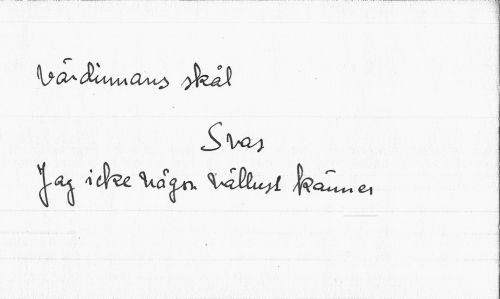 Värdinnans skål
Svar
Jag icke någon vällust känner